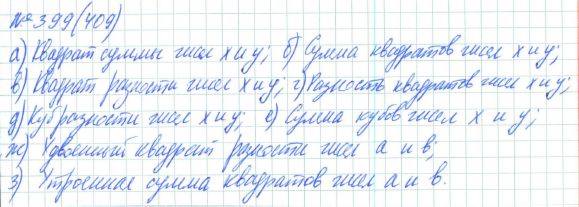 № 399(409)
а) Квадрат суммы чисел х и у; б) Сумма квадратов чисел х и у;
в) Квадрат разности чисел х и у; г) Разность квадратов чисел х и у;
д) Куб разности чисел х и у; е) Сумма кубов чисел х и у;
ж) Удвоенный квадрат разности чисел а и в;
з) Утроенная сумма квадратов чисел а и в.